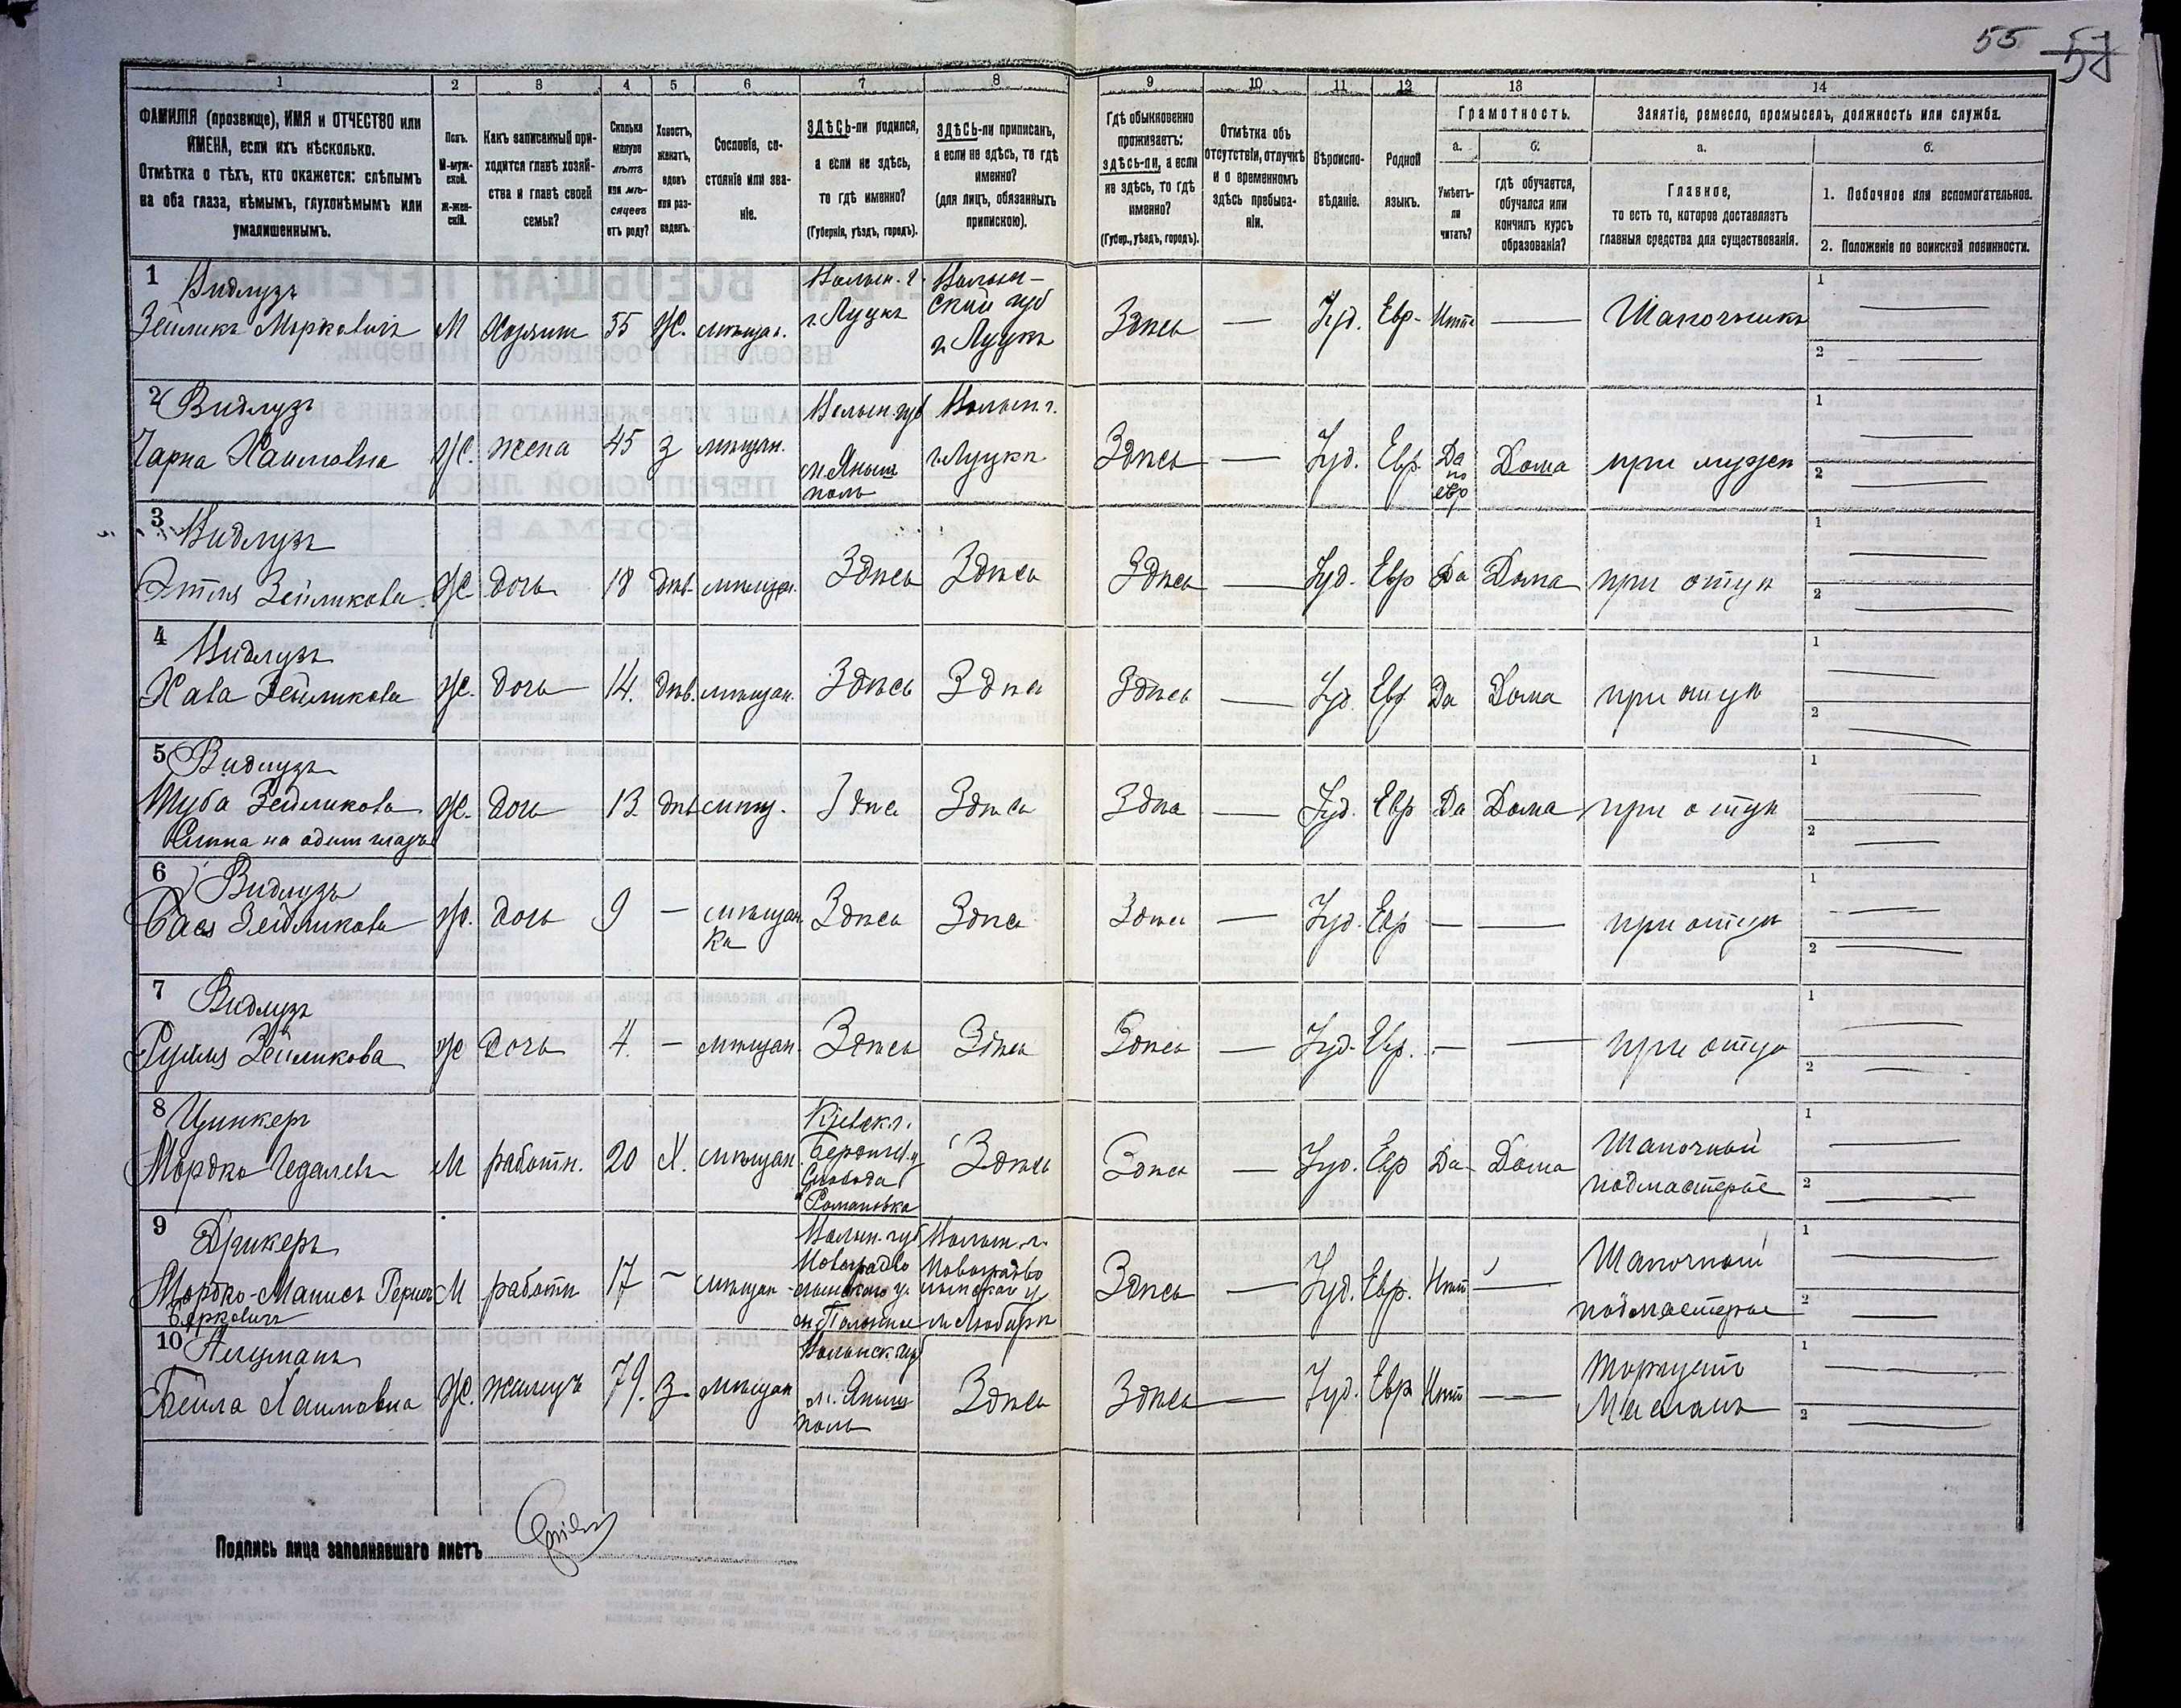 55 57
1 2 3 4 5 6 7 8 9 10 11 12 13 14
ФАМИЛІЯ (прозвище), ИМЯ и ОТЧЕСТВО или ИМЕНА, если ихъ нѣсколько.
Отмѣтка о тѣхъ, кто окажется: слѣпымъ на оба глаза, нѣмымъ, глухонѣмымъ или умалишеннымъ.
Полъ. М-мужской. Ж-женскій.
Какъ записанный приходится главѣ хозяйства и главѣ своей семьи?
Сколько минуло лѣтъ или мѣсяцевъ отъ роду?
Холостъ, женатъ, вдовъ или разведенъ.
Сословіе, состояніе или званіе.
ЗДѢСЬ-ли родился, а если не здѣсь, то гдѣ именно? (Губернія, уѣздъ, городъ).
ЗДѢСЬ-ли приписанъ, а если не здѣсь, то гдѣ именно? (для лицъ, обязанныхъ припискою).
Гдѣ обыкновенно проживаетъ: здѣсь-ли, а если не здѣсь, то гдѣ именно? (Губер., уѣздъ, городъ).
Отмѣтка объ отсутствіи, отлучкѣ и о временномъ здѣсь пребываніи.
Вѣроисповѣданіе.
Родной языкъ.
Грамотность.
а. Умѣетъ-ли читать?
б. гдѣ обучается, обучался или кончилъ курсъ образованія?
Занятіе, ремесло, промыселъ, должность или служба.
а. Главное, то есть то, которое доставляетъ главныя средства для существованія.
б. 1. Побочное или вспомогательное.
2. Положеніе по воинской повинности.
1 Видлузъ Зейликъ Морковичъ М Хозяинъ 55 Ж. мѣщан. Волын. г. г. Луцкъ Волынский губ г. Луцкъ Здѣсь — Іуд. Евр. Нѣтъ — Шапочникъ 1 — 2 —
2 Видлузъ Чарна Хаимовна Ж. жена 45 З мѣщан. Волын. губ м. Янышполь Волын. г. г. Луцкъ Здѣсь — Іуд. Евр. Да по евр Дома при мужѣ 1 — 2 —
3 Видлузъ Этля Зейликова Ж дочь 18 дѣв. мѣщан. Здѣсь Здѣсь Здѣсь — Іуд. Евр Да Дома при отцѣ 1 — 2 —
4 Видлузъ Хава Зейликова Ж. дочь 14. дѣв. мѣщан. Здѣсь Здѣсь Здѣсь — Іуд. Евр Да Дома при отцѣ 1 — 2 —
5 Видлузъ Туба Зейликова Ж. дочь 13. дѣв мѣщ. Здѣсь Здѣсь Здѣсь — Іуд. Евр Да Дома при отцѣ 1 — 2 —
на одинъ глазъ
6 Видлузъ Бася Зейликова Ж. дочь 9 — мѣщанка Здѣсь Здѣсь Здѣсь — Іуд. Евр — — при отцѣ 1 — 2 —
7 Видлузъ Зейликова Ж дочь 4. — мѣщан. Здѣсь Здѣсь Здѣсь — Іуд. Евр. — — при отцѣ 1 — 2 —
8 Цинкеръ Мордко Гедалевъ М работн. 20 Х. мѣщан. Кіевск. г. Бердич. у Слобода Романовка Здѣсь Здѣсь — Іуд. Евр Да Дома Шапочный подмастерье 1 — 2 —
9 Друкеръ Мордко-Манисъ Герш Берковичъ М работн 17 — мѣщан Волын. губ Новоградволынского у. м. Полонное Волын. г. Новоградволынского у м. Любаръ Здѣсь — Іуд. Евр. Нѣтъ — Шапочный подмастерье 1 — 2 —
10 Бейла Хаимовна Ж. жилецъ 79. З мѣщан Волынск. губ м. Янышполь Здѣсь Здѣсь — Іуд. Евр Нѣтъ — торгуетъ 1 — 2 —
Подпись лица заполнявшаго листъ